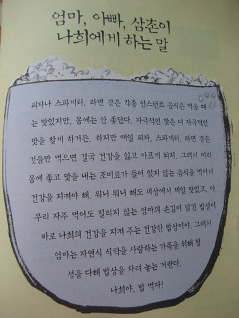 엄마, 아빠, 삼촌이
나희에게 하는 말
피자나 스파게티, 라면 같은 각종 인스턴트 음식은 먹을 때
는 맛있지만, 몸에는 안 좋단다. 자극적인 맛은 더 자극적인
맛을 찾기 하거든. 하지만 매일 피자, 스파게티, 라면 같은
것들만 먹으면 결국 건강을 잃고 아프게 되지. 그래서
몸에 좋고 맛을 내는 조미료가 들어 있지 않은 음식을 먹어서
건강을 지켜야 해. 뭐니 뭐니 해도 세상에서 제일 맛있고, 아
무리 자주 먹어도 질리지 않는 엄마의 손길이 담긴 밥상이
바로 나희의 건강을 지켜 주는 건강한 밥상이야. 그래서
엄마는 자연식 식탁을 사랑하는 가족을 위해 정
성을 다해 밥상을 차려 놓는 거란다.
나희야, 밥 먹자!